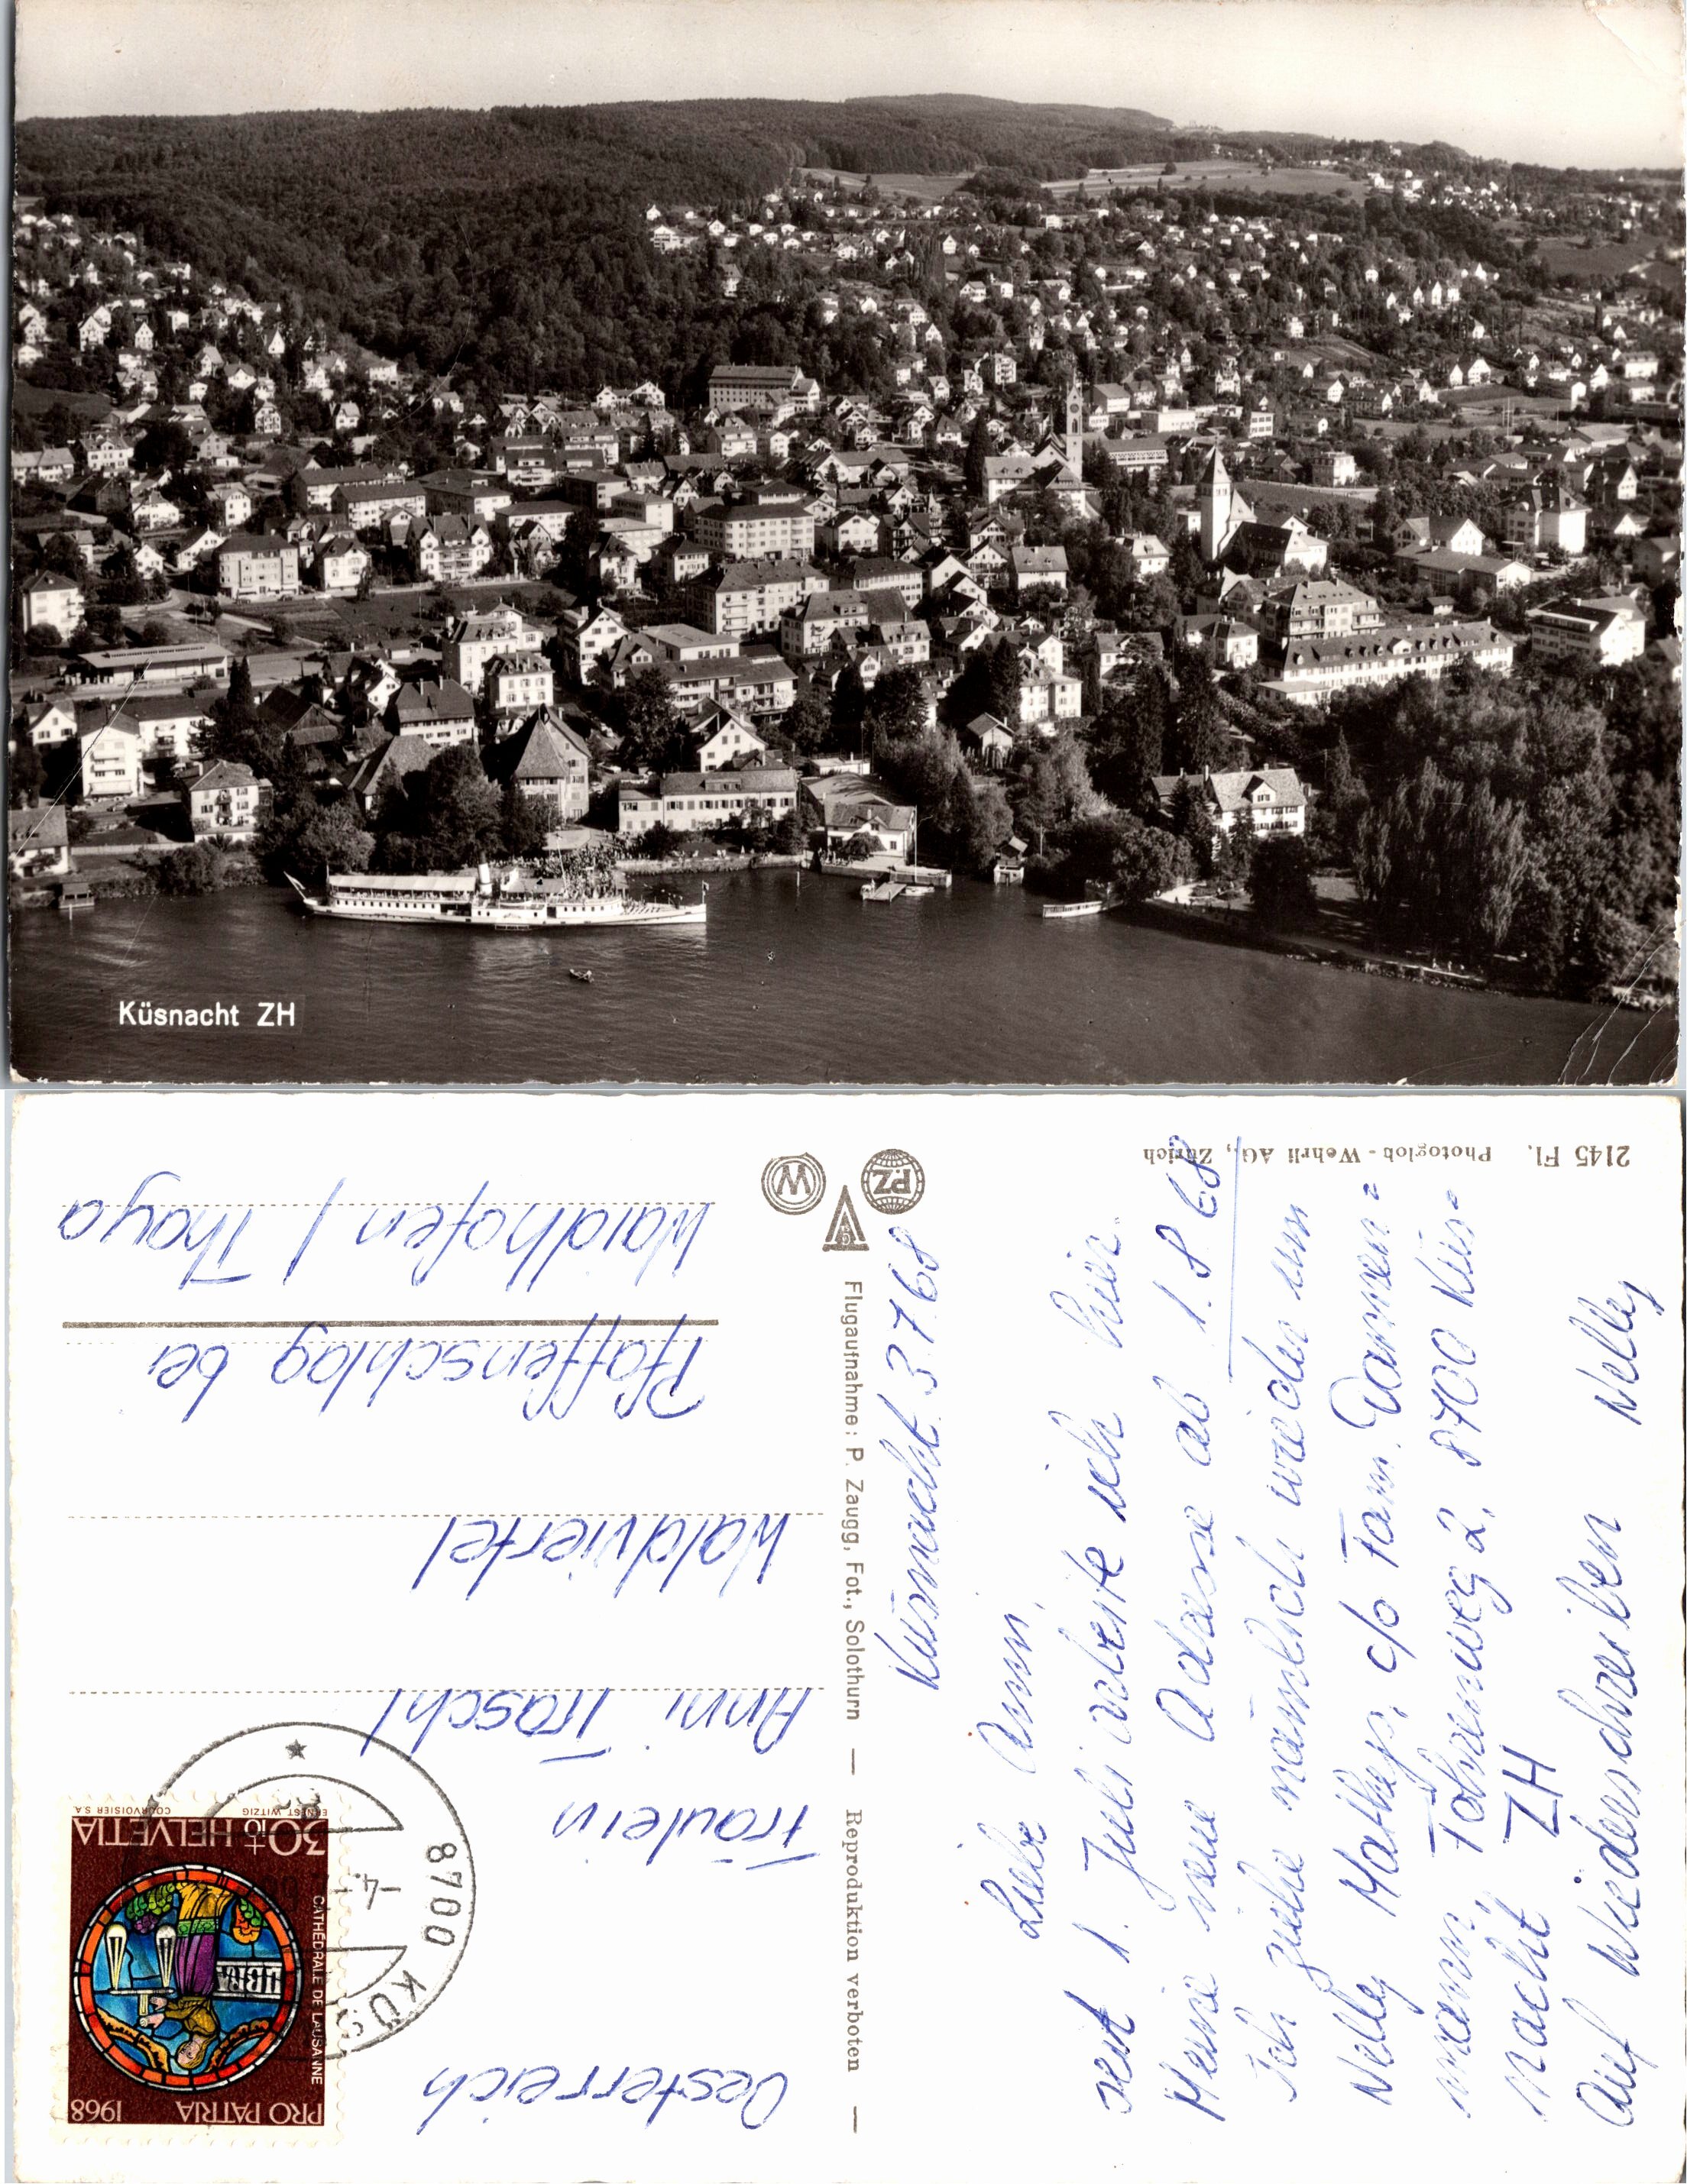 Küsnacht ZH
2145 Fl.
Photoglob-Wehrli AG., Zürich
PZ
W
Flugaufnahme: P. Zaugg, Fot., Solothurn — Reproduktion verboten —
Küsnacht 3.7.68
Liebe Anni,
seit 1. Juli arbeite ich hier.
Meine neue Adresse ab 1.8.68
Ich ziehe nämlich wieder um
Nelly Mathys, c/o Fam. Dannen=
mann, Föhrenweg 2, 8700 Küs=
nacht ZH
Auf Wiederschreiben Nelly
PRO PATRIA 1968
CATHÉDRALE DE LAUSANNE
30+10 HELVETIA
ERNEST WITZIG
COURVOISIER S.A.
8700 KÜS
-4.
Oesterreich
Fräulein
Anni Traschl
Waldviertel
Pfaffenschlag bei
Waidhofen / Thaya